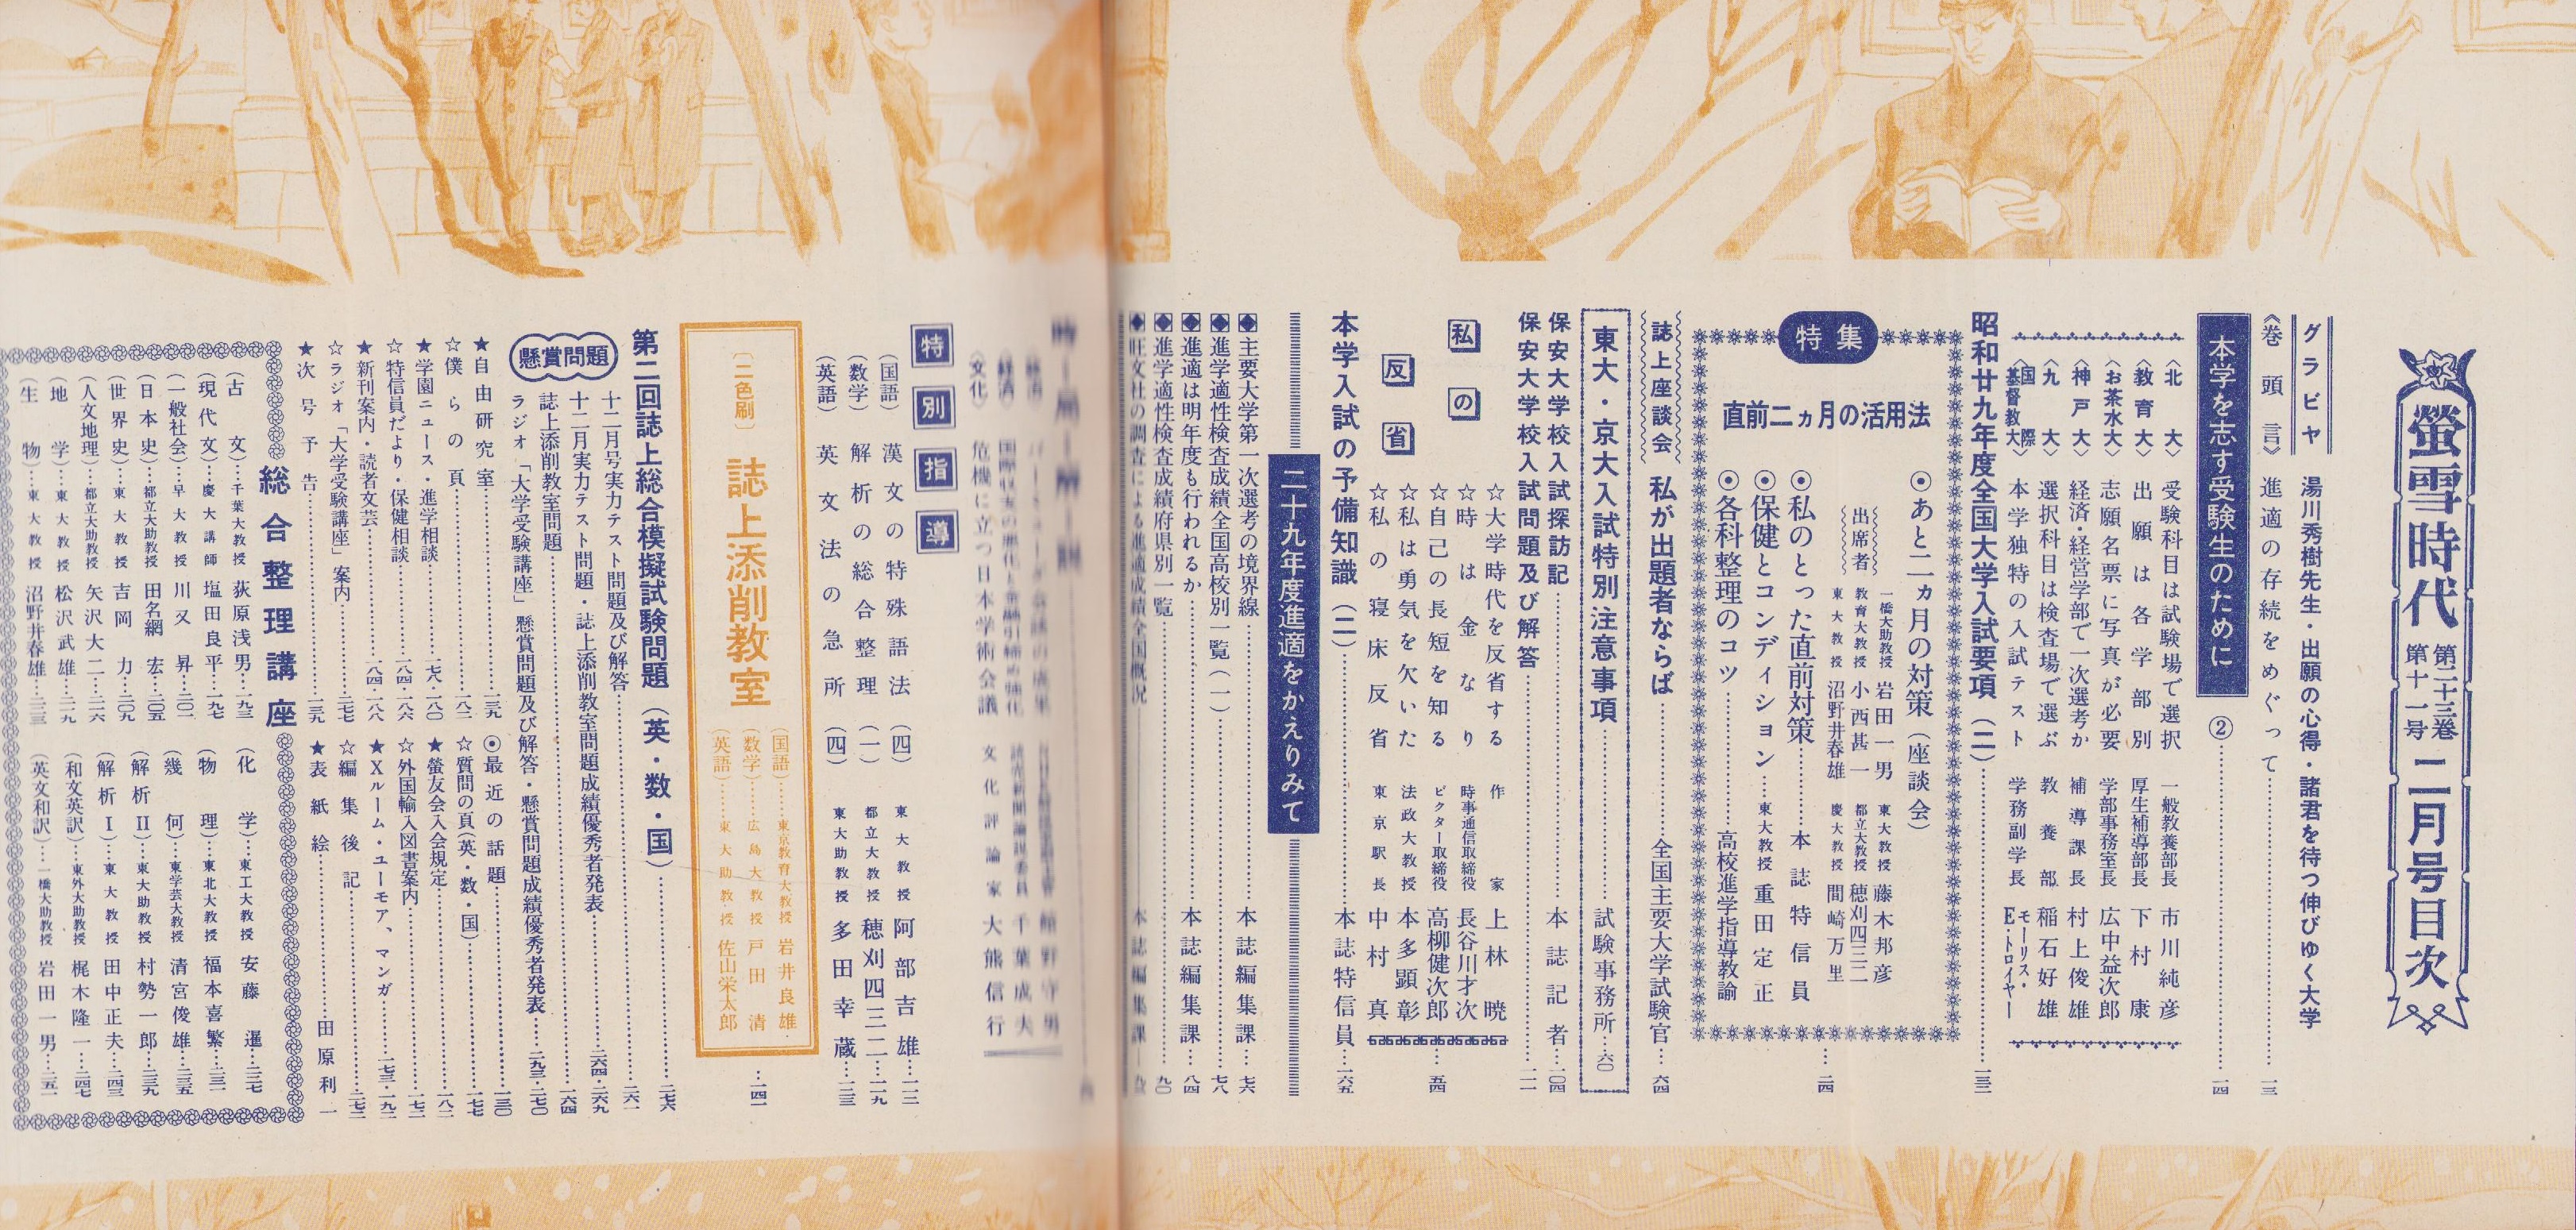 螢雪時代 第二十三巻 第十一号 二月号目次
グラビヤ 湯川秀樹先生・出願の心得・諸君を待つ伸びゆく大学
《巻頭言》 進適の存続をめぐって…一三
本学を志す受験生のために ②…一四
〈北大〉 受験科目は試験場で選択 一般教養部長 市川純彦
〈教育大〉 出願は各学部別 厚生補導部長 下村康
〈お茶水大〉 志願名票に写真が必要 学部事務室長 広中益次郎
〈神戸大〉 経済・経営学部で一次選考か 補導課長 村上俊雄
〈九大〉 選択科目は検査場で選ぶ 教養部 稲石好雄
〈国際基督教大〉 本学独特の入試テスト 学務副学長 モーリス・E・トロイヤー
昭和廿九年度全国大学入試要項(二)…一三二
特集
直前二ヵ月の活用法
⦿あと二ヵ月の対策(座談会)
出席者
一橋大助教授 岩田一男 東大教授 藤木邦彦
教育大教授 小西甚一 都立大教授 穂刈四三二
東大教授 沼野井春雄 慶大教授 間崎万里
⦿私のとった直前対策…本誌特信員
⦿保健とコンディション…東大教授 重田定正
⦿各科整理のコツ…高校進学指導教諭
…二四
誌上座談会 私が出題者ならば…全国主要大学試験官…六四
東大・京大入試特別注意事項…試験事務所…六〇
保安大学校入試探訪記…本誌記者…一〇四
保安大学校入試問題及び解答…一一一
私の反省
☆大学時代を反省する 作家 上林暁
☆時は金なり 時事通信取締役 長谷川才次
☆自己の長短を知る ビクター取締役 高柳健次郎
☆私は勇気を欠いた 法政大教授 本多顕彰
☆私の寝床反省 東京駅長 中村真
…五四
本学入試の予備知識(二)…本誌特信員…一六五
二十九年度進適をかえりみて
◆主要大学第一次選考の境界線…本誌編集課…七六
◆進学適性検査成績全国高校別一覧(一)…七八
◆進適は明年度も行われるか…本誌編集課…八四
◆進学適性検査成績府県別一覧…九〇
◆旺文社の調査による進適成績全国概況…本誌編集課
〈文化〉 危機に立つ日本学術会議 文化評論家 大熊信行
特別指導
(国語) 漢文の特殊語法(四) 東大教授 阿部吉雄
(数学) 解析の総合整理(一) 都立大教授 穂刈四三二…一一九
(英語) 英文法の急所(四) 東大助教授 多田幸蔵…一二三
〔二色刷〕 誌上添削教室
(国語)…東京教育大教授 岩井良雄
(数学)…広島大教授 戸田清
(英語)…東大助教授 佐山栄太郎
…一四一
第二回誌上総合模擬試験問題(英・数・国)…二七六
懸賞問題
十二月号実力テスト問題及び解答…二六一
十二月実力テスト問題・誌上添削教室問題成績優秀者発表…二六四・二六九
誌上添削教室問題…一六四
ラジオ「大学受験講座」懸賞問題及び解答・懸賞問題成績優秀者発表…二九三・二七〇
★自由研究室…三九
☆僕らの頁…一八二
★学園ニュース・進学相談…一七六・一八〇
☆特信員だより・保健相談…一八四・一八六
★新刊案内・読者文芸…一八四・一八八
☆ラジオ「大学受験講座」案内…二七七
★次号予告…三九
⦿最近の話題…一三〇
☆質問の頁(英・数・国)…一七七
★螢友会入会規定…一八二
☆外国輸入図書案内…一七二
★Xルーム・ユーモア、マンガ…一七三・一九二
☆編集後記…二七二
★表紙絵…田原利一
総合整理講座
(古文)…千葉大教授 荻原浅男…一九三
(現代文)…慶大講師 塩田良平…一九七
(一般社会)…早大教授 川又昇…二〇一
(日本史)…都立大助教授 田名網宏…二〇五
(世界史)…東大教授 吉岡力…二〇九
(人文地理)…都立大助教授 矢沢大二…二一六
(地学)…東大教授 松沢武雄…二一九
(生物)…東大教授 沼野井春雄…二二三
(化学)…東工大教授 安藤暹…二二七
(物理)…東北大教授 福本喜繁…二三一
(幾何)…東学芸大教授 清宮俊雄…二三五
(解析II)…東大助教授 村勢一郎…二三九
(解析I)…東大教授 田中正夫…二四三
(和文英訳)…東外大助教授 梶木隆一…二四七
(英文和訳)…一橋大助教授 岩田一男…二五一